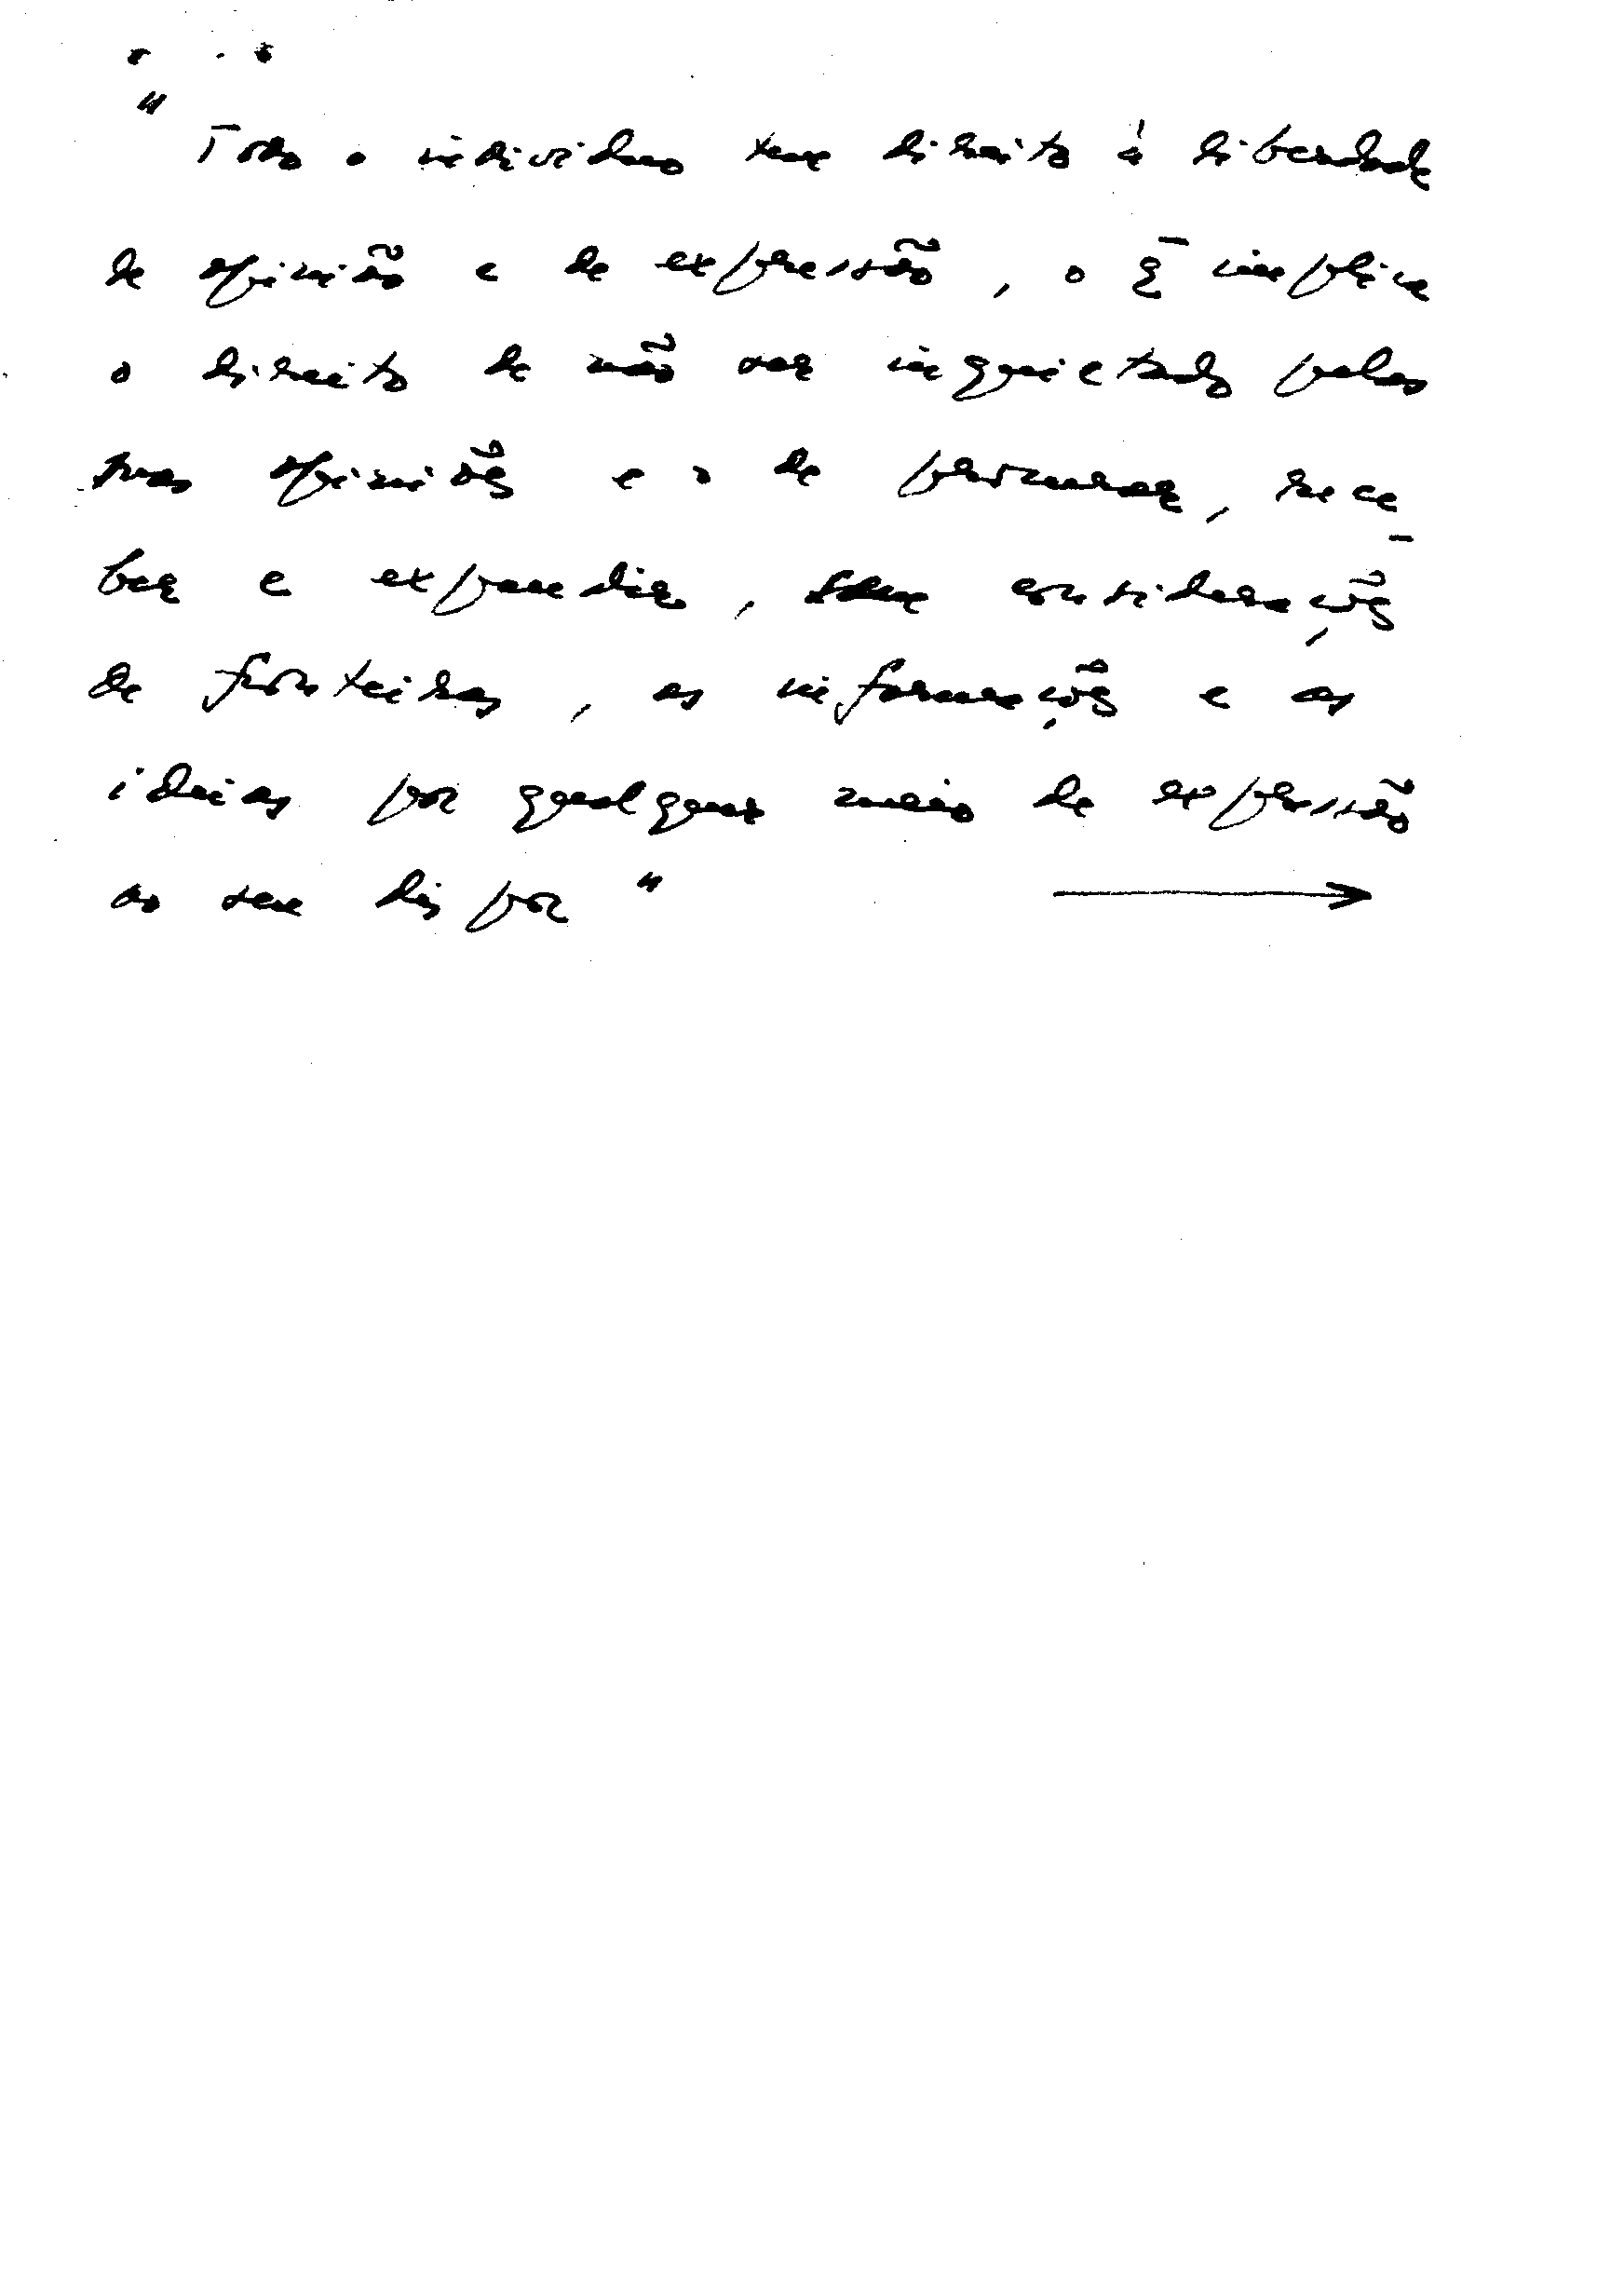 " Todo o individuo tem direito à liberdade
de opinião e de expressão, o q̄ implica
o direito de não ser inquietado pelas
suas opiniões e o de procurar, rece-
ber e expandir, sem considerações
de fronteiras, as informações e as
ideias por qualquer meio de expressão
ao seu dispor "